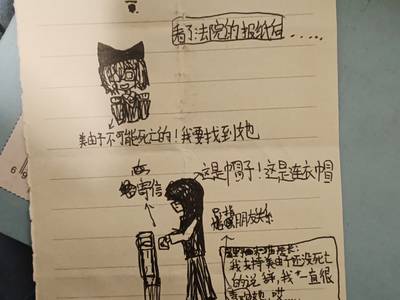 看了法院的报纸后......
美由子不可能死亡的！我要找到她
这是帽子！这是连衣帽
寄信
朋友关系
我支持美由子还没死亡
的说辞，我一直很